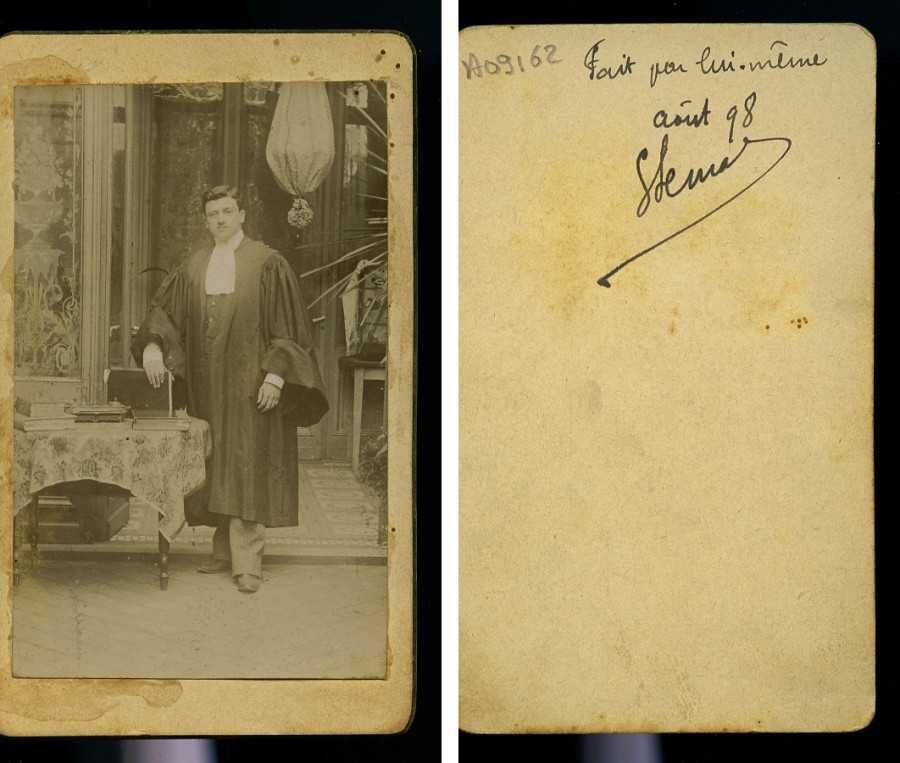 A09162
Fait par lui-même
août 98